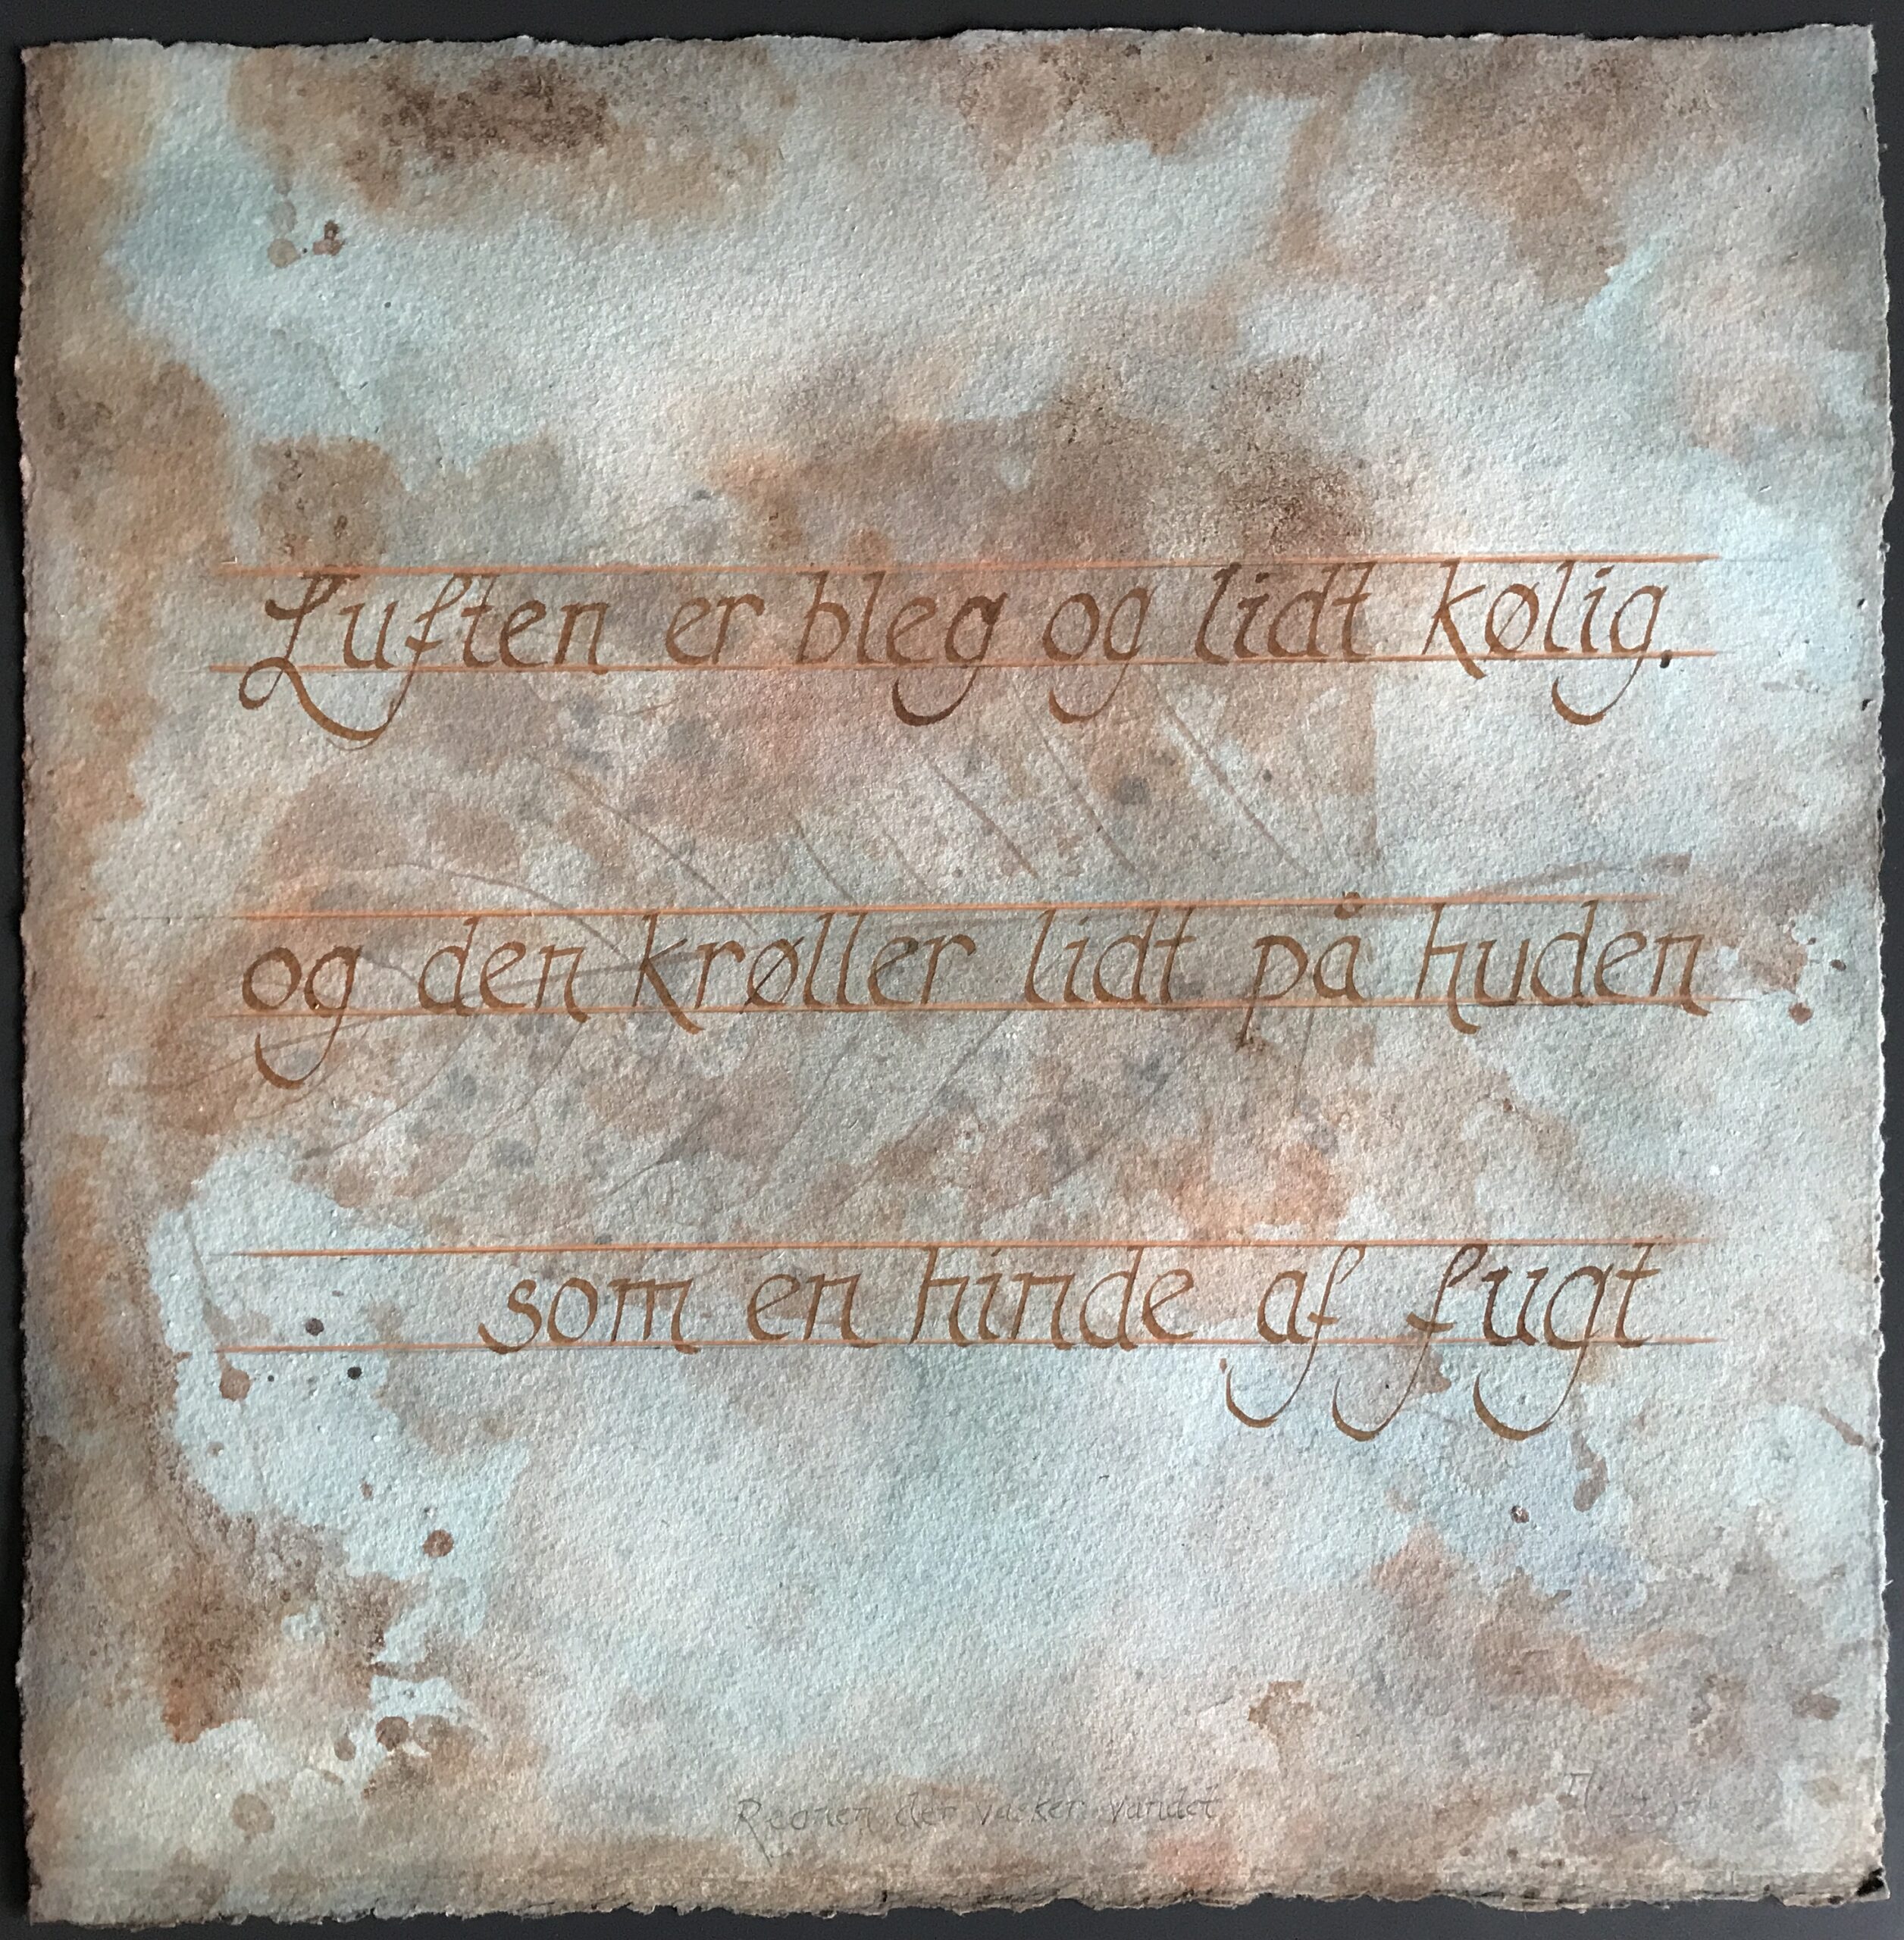 Luften er bleg og lidt kølig,
og den krøller lidt på huden
som en hinde af fugt
Regnen der vækker vandet